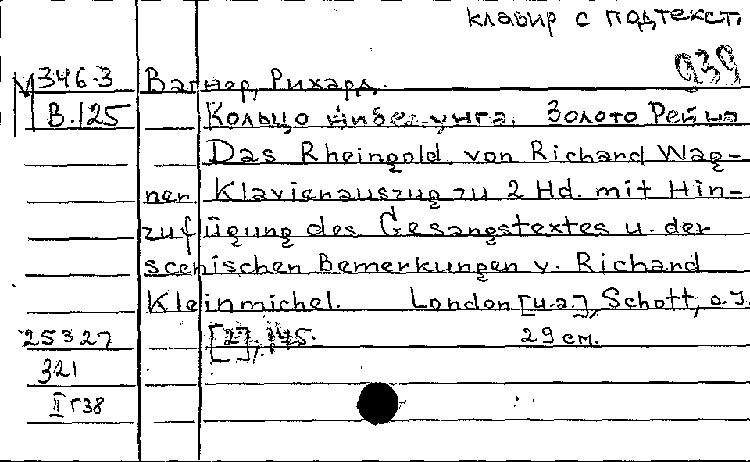 клавир с подтекст.
939
М 346-3 Вагнер, Рихард.
В.125 Кольцо нибелунга. Золото Рейна
Das Rheingold von Richard Wag-
ner Klavierauszug zu 2 Hd. mit Hin-
zufügung des Gesangstextes u. der
scenischen Bemerkungen v. Richard
Kleinmichel. London [u.a], Schott, o.J.
25327 145. 29 см.
321
II г38